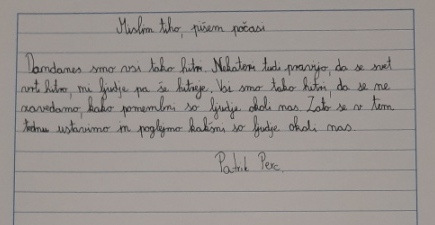 Mislim tiho, pišem počasi
Dandanes smo vsi tako hitri. Nekateri tudi pravijo, da se svet
vrti hitro, mi ljudje pa še hitreje. Vsi smo tako hitri, da se ne
zavedamo, kako pomembni so ljudje okoli nas. Zato se v tem
tednu ustavimo in poglejmo kakšni so ljudje okoli nas.
Patrik Perc.